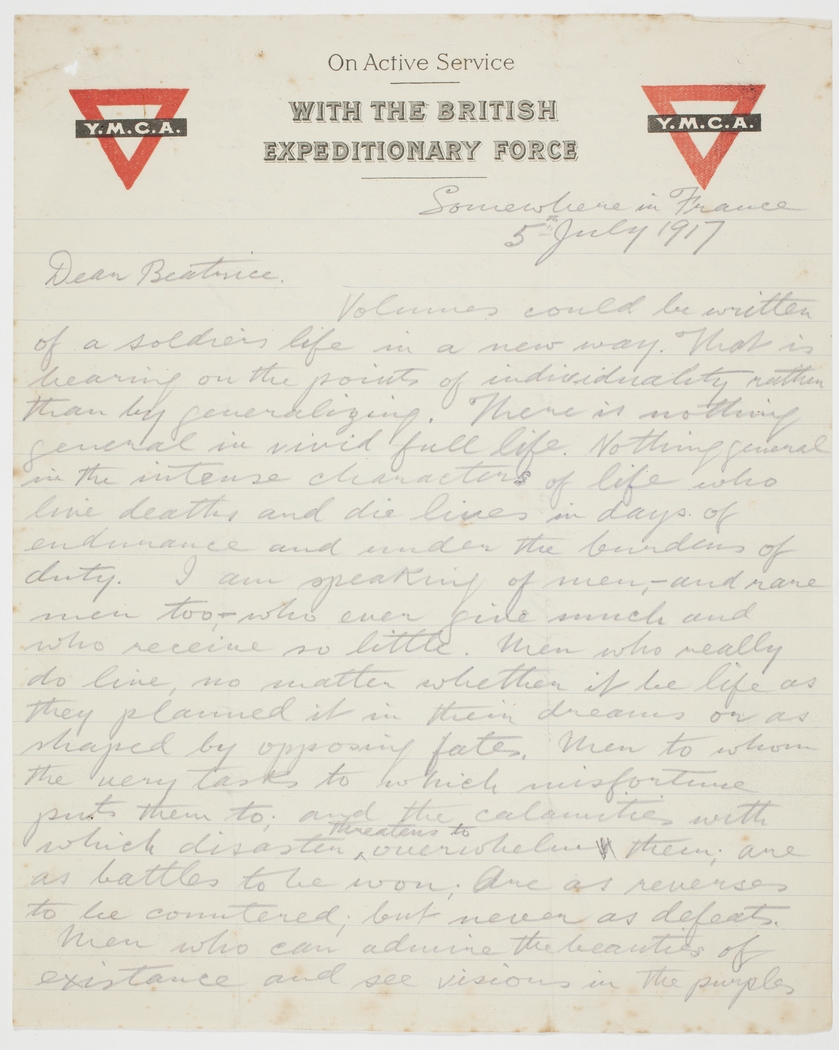 On Active Service
WITH THE BRITISH
EXPEDITIONARY FORCE
Y.M.C.A.
Y.M.C.A.
Somewhere in France
5th July 1917
Dear Beatrice.
Volumes could be written
of a soldiers life in a new way. That is
bearing on the points of individuality rather
than by generalizing. There is nothing
general in vivid full life. Nothing general
in the intense characters of life who
live deaths and die lives in days of
endurance and under the burdens of
duty. I am speaking of men,-and rare
men too,-who ever give much and
who receive so little. Men who really
do live, no matter whether it be life as
they planned it in their dreams or as
shaped by opposing fates. Men to whom
the very tasks to which misfortune
puts them to; and the calamities with
which disaster threatens to overwhelm them; are
as battles to be won; Are as reverses
to be countered; but never as defeats.
Men who can admire the beauties of
existance and see visions in the purples